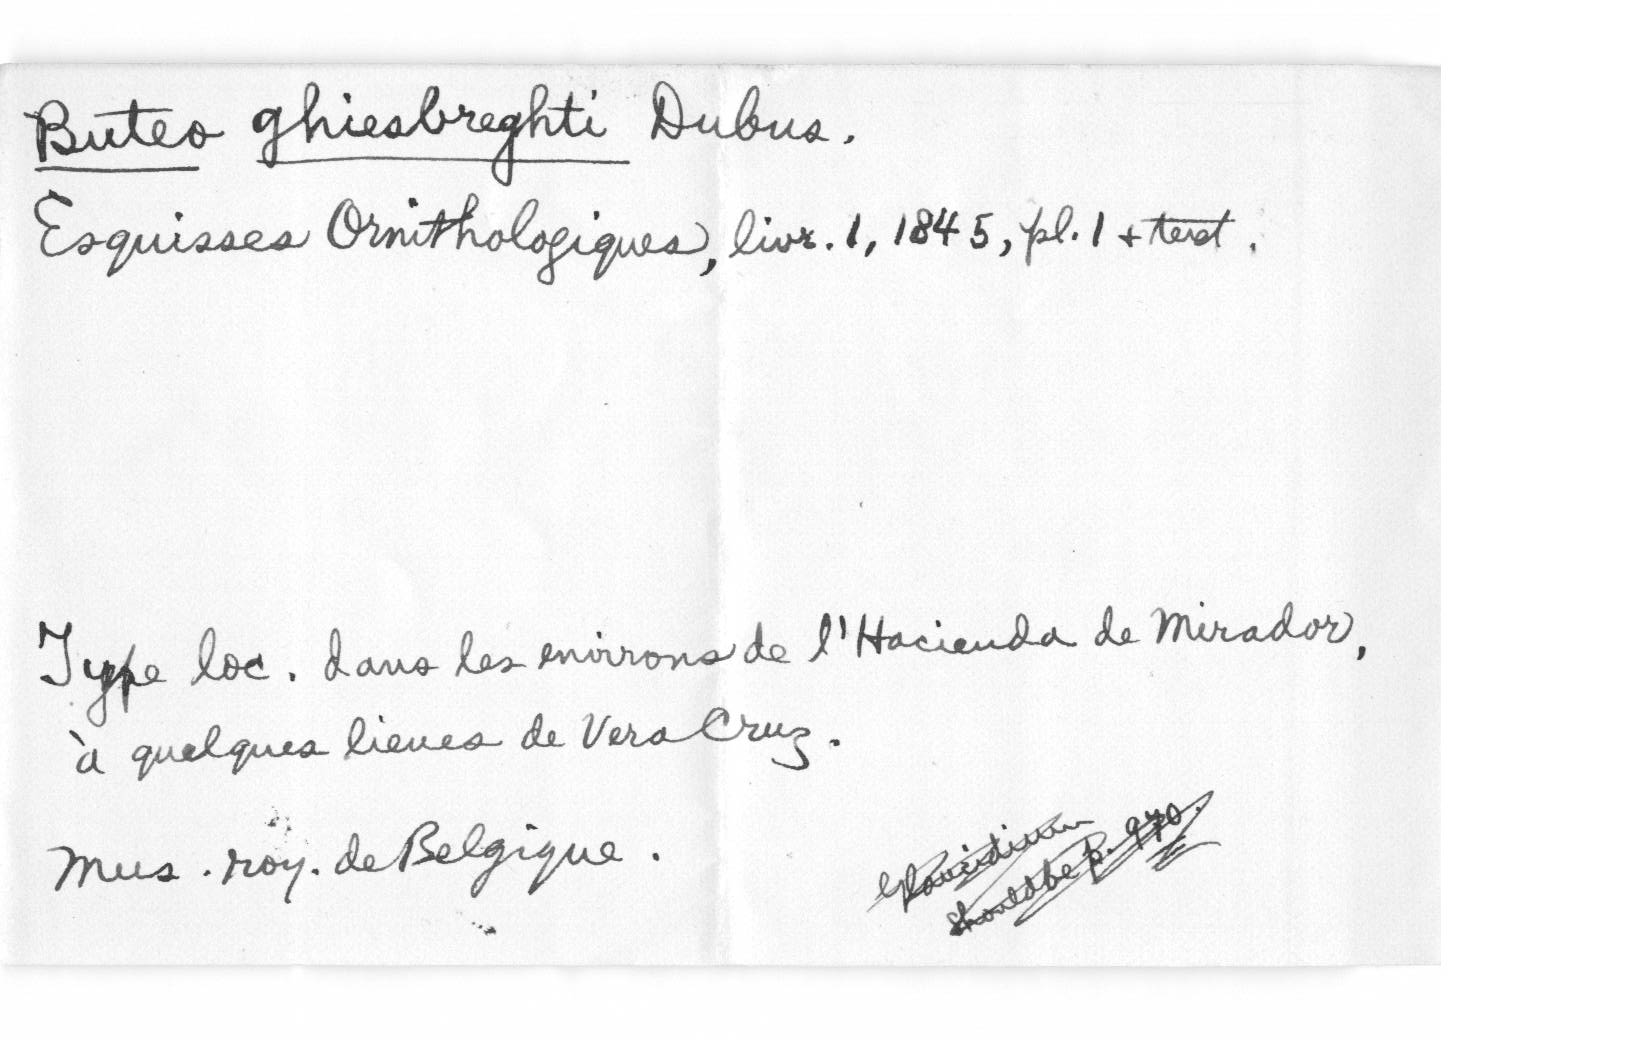 Buteo ghiesbreghti Dubus.
Esquisses Ornithologiques, livr. 1, 1845, pl. 1 + text.
Type loc. dans les environs de l'Hacienda de Mirador,
à quelques lieues de Vera Cruz.
Mus. roy. de Belgique.
Glaucidium
should be p. 970.